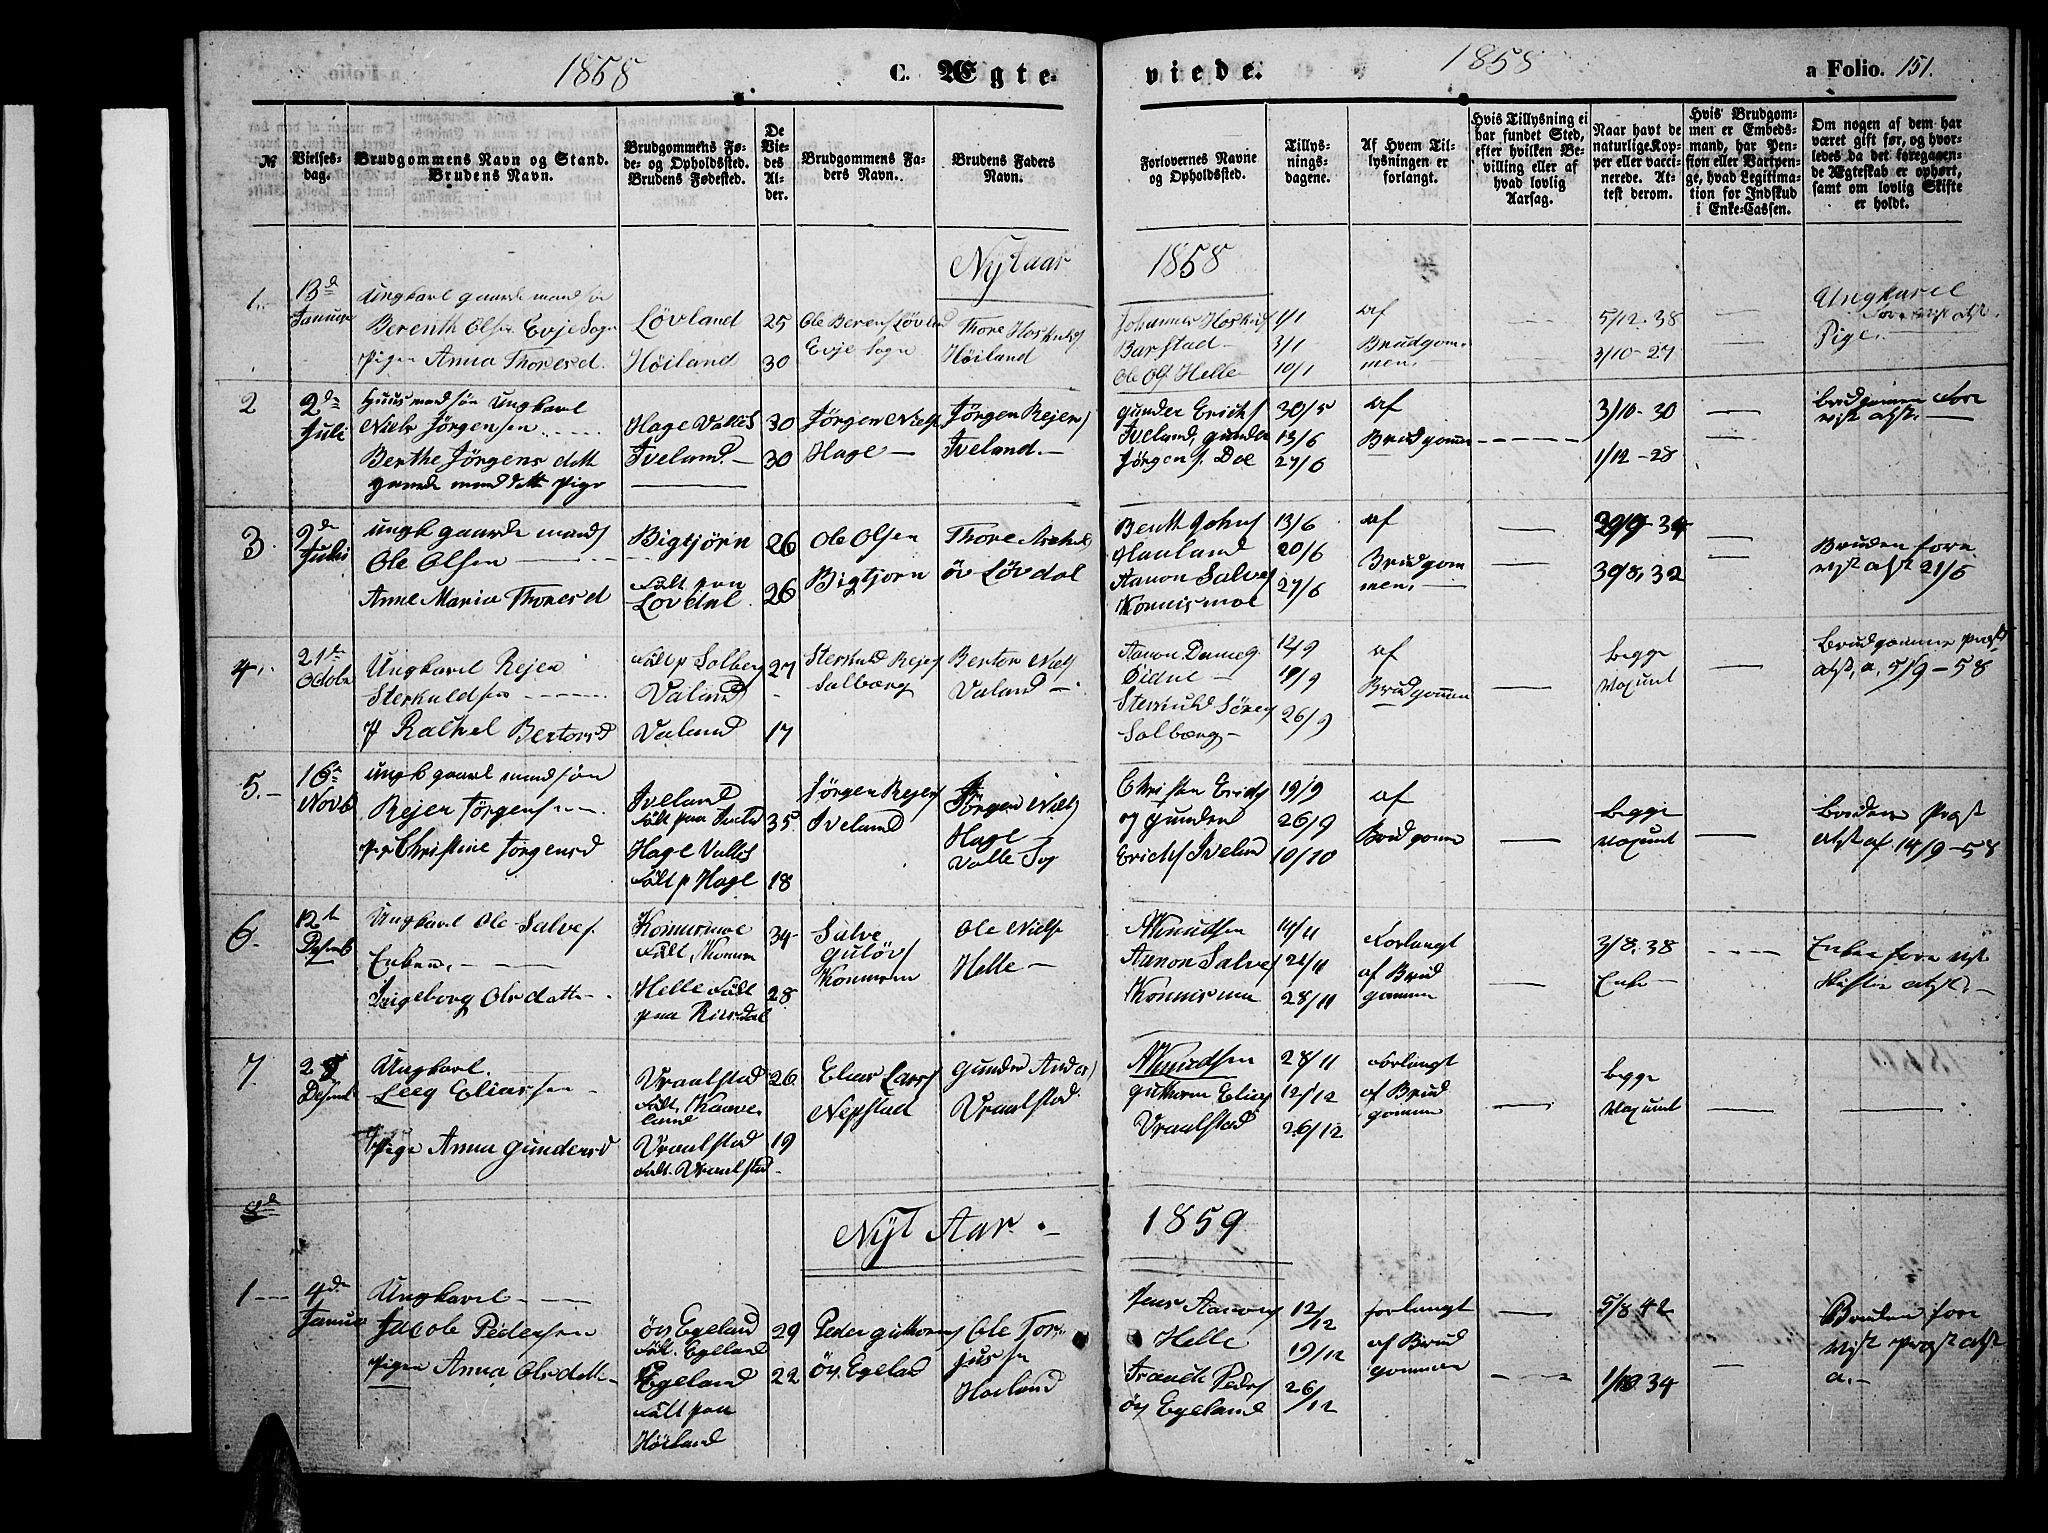 1858
C. Ægte-
viede.
1858
a Folio. 151.
№
Vielses-
dag.
Brudgommens Navn og Stand.
Brudens Navn.
Brudgommens Fø-
de- og Opholdssted.
Brudens Fødested.
De
Vie-
des
Al-
der.
Brudgommens Fa-
ders Navn.
Brudens Faders
Navn.
Forlovernes Navne
og Opholdssted.
Tillys-
nings-
dagene.
Af Hvem Til-
lysningen er
forlangt.
Hvis Tillysning ei
har fundet Sted,
efter hvilken Be-
villing eller af
hvad lovlig
Aarsag.
Naar havt de
naturlige Kop-
per eller vacci-
nerede. At-
test derom.
Hvis Brudgom-
men er Embeds-
mand, har Pen-
sion eller Vartpen-
ge, hvad Legitima-
tion for Indskud
i Enke-Cassen.
Om nogen af dem har
været gift før, og hvor-
ledes da det foregaaen-
de Ægteskab er ophørt,
samt om lovlig Skifte
er holdt.
Nytaar
1858
1.
13d
Januar
Ungkarl gaardmandsøn
Berenth Olsen Evje Sogn
Pigen Anna Thoresd.
Løvland
Høiland
25
30
Ole Berens Løvland
Evje Sogn
Thore
Høiland
Johannes
Barstad
Ole Ols. Helle
1/1
3/1
10/1
af
Brudgom-
men.
5/12-38
3/10-27
Ungkarl
Pige.
2
2d
Juli
Huusmandsøn Ungkarl
Niels Jørgensen
Berthe Jørgensdatt
gaardmandsdatt Pige
Hage Valles
Iveland.
30
30
Jørgen Niels
Hage
Jørgen Rejers
Iveland.
Gunder Erichs
Iveland, Gunder
Jørgens. Doe
30/5
13/6
27/6
af
Brudgomm
3/10-30
1/12-28
Brudgommen fore
vist atst.
3
2de
Juli
Ungk gaardmands
Ole Olsen
Anne Maria Thoresd
Bigtjørn
Født paa
Løvdal
26
26
Ole Olsen
Bigtjørn
Thore
øv Løvdal
Berth Johns
Hauland
Aanon Salves
Konnismoe
13/6
20/6
27/6
af
Brudgom
men.
29/9-34
30/8.32
Bruden fore
vist atst 21/6
4.
21de
Octobr
Ungkarl Rejer
Sterkuldsen
P Rachel Bertorsd
Født p Solberg
Valand
Valand
27
17
Sterkuld Rejers
Solberg
Bertor Niels
Valand
Aanon
Eidne
Sterkuld Sørens
Solberg
12/9
19/9
26/9
af
Brudgommen
begge
Voxunt
Brudgommen Præst
atst, a. 5/9-58
5.
16de
Novb
Ungk gaardmandsøn
Rejer Jørgensen
Pige Christine Jørgensd
Iveland
Født paa Iveland
Hage Valles
Født p Hage
35
18
Jørgen Rejers
Iveland
Jørgen Niels
Hage
Valle Sog
Christen Erichs
og Gunder
Erichs Iveland
19/9
26/9
10/10
af
Brudgomm
begge
voxunt
Bruden Præst
atst af 14/9-58
6.
12te
Desemb
Ungkarl Ole Salves.
Enken
Ingeborg Olsdatt
Konnismoe
Født Konnism
Helle Født
paa Riisdal
34
28
Salve
Guløvs
Konnismo
Ole Niels
Helle
AKnudsen
Aanon Salves
Konnismo
14/11
21/11
28/11
Forlangt
af Brud
gommen
3/8.38
Enke
Enken fore vist
Skifte atst.
7.
Desemb
Ungkarl.
Leeg Eliassen
Pige Anna Gundersd
Vraalstad
Født.
land
Vraalstad
Født. Vraalstad
26
19
Elias Lars
Nepstad
Gunder Anders
Vraalstad
AKnudtsen
Guthorm Elias
Vraalstad
28/11
12/12
26/12
Forlangt
af Brud
gommen
begge
Voxunt
8d
Nyt Aar
1859
1
4de
Januar
Ungkarl
Jacob Pedersen
Pigen Anna Olsdatt
øv Egeland
Født. Egeland
Egeland
Født paa
Høiland
29
22
Peder Guthorms
Øv. Egeland
Ole Tor-
jussn
Høiland
Jens Aanons
Helle
Traadt Peders
øv Egeland
12/12
19/12
26/12
forlangt
af Brud
gommen
5/8.42
1/10.34
Bruden fore
vist Præst atst
a.